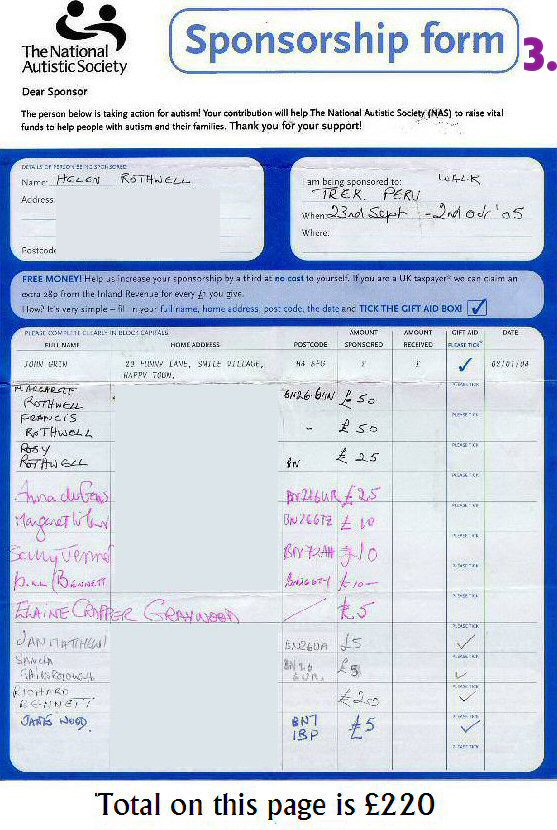 The National
Autistic Society
Sponsorship form 3.
Dear Sponsor
The person below is taking action for autism! Your contribution will help The National Autistic Society (NAS) to raise vital
funds to help people with autism and their families. Thank you for your support!
DETAILS OF PERSON BEING SPONSORED
Name: HELEN ROTHWELL
Address:
Postcode
I am being sponsored to: WALK
TREK PERU
When: 23rd Sept - 2nd Oct '05
Where:
FREE MONEY! Help us increase your sponsorship by a third at no cost to yourself. If you are a UK taxpayer* we can claim an
extra 28p from the Inland Revenue for every £1 you give.
How? It's very simple – fill in your full name, home address, post code, the date and TICK THE GIFT AID BOX!
PLEASE COMPLETE CLEARLY IN BLOCK CAPITALS
FULL NAME HOME ADDRESS POSTCODE AMOUNT SPONSORED AMOUNT RECEIVED GIFT AID PLEASE TICK* DATE
JOHN GRIN 29 FUNNY LANE, SMILE VILLAGE, HA4 8FG £ £ 02/01/04
HAPPY TOWN,
PLEASE TICK
MARGARET
ROTHWELL BN26 6UN £50
PLEASE TICK
FRANCIS
ROTHWELL - £50
PLEASE TICK
ROSY
ROTHWELL BN £25
PLEASE TICK
Anna BN216UR £25
PLEASE TICK
Margaret BN266TZ £10
PLEASE TICK
£10
PLEASE TICK
BENNETT £10-
PLEASE TICK
ELAINE CRAPPER GRAYWOOD £5
PLEASE TICK
JAN MATTHEWS BN26UA £5
PLEASE TICK
BN26 £5
6UR
PLEASE TICK
RICHARD
BENNETT £2.50
PLEASE TICK
JAMES WOOD BN7 £5
1BP
PLEASE TICK
Total on this page is £220